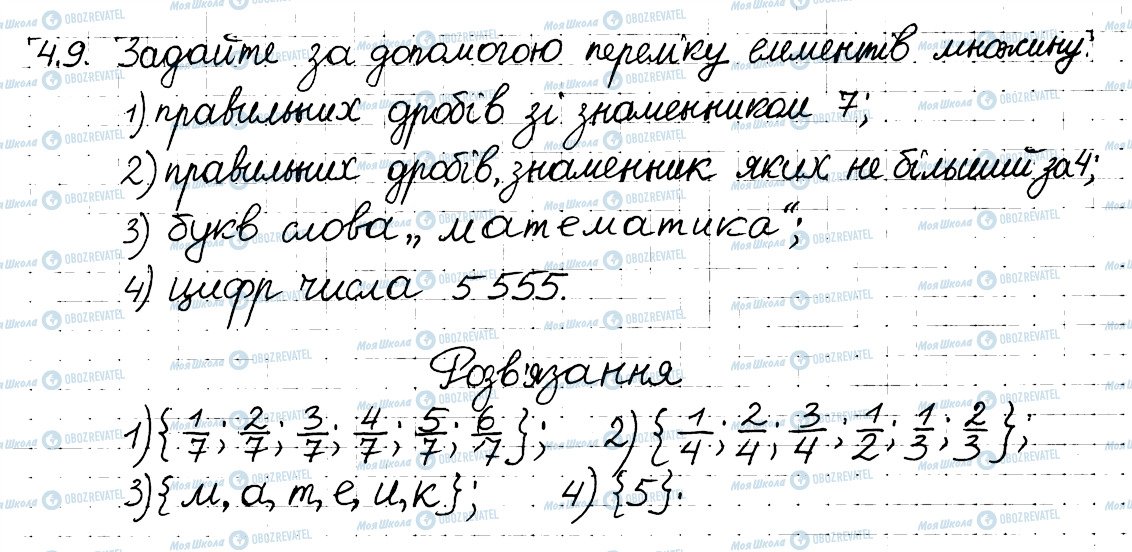 4.9. Задайте за допомогою переліку елементів множину:
1) правильних дробів зі знаменником 7;
2) правильних дробів, знаменник яких не більший за 4;
3) букв слова „математика“;
4) цифр числа 5 555.
Розв'язання
1) {1/7; 2/7; 3/7; 4/7; 5/7; 6/7}; 2) {1/4; 2/4; 3/4; 1/2; 1/3; 2/3};
3) {м, а, т, е, и, к}; 4) {5}.
МояШкола OBOZREVATEL